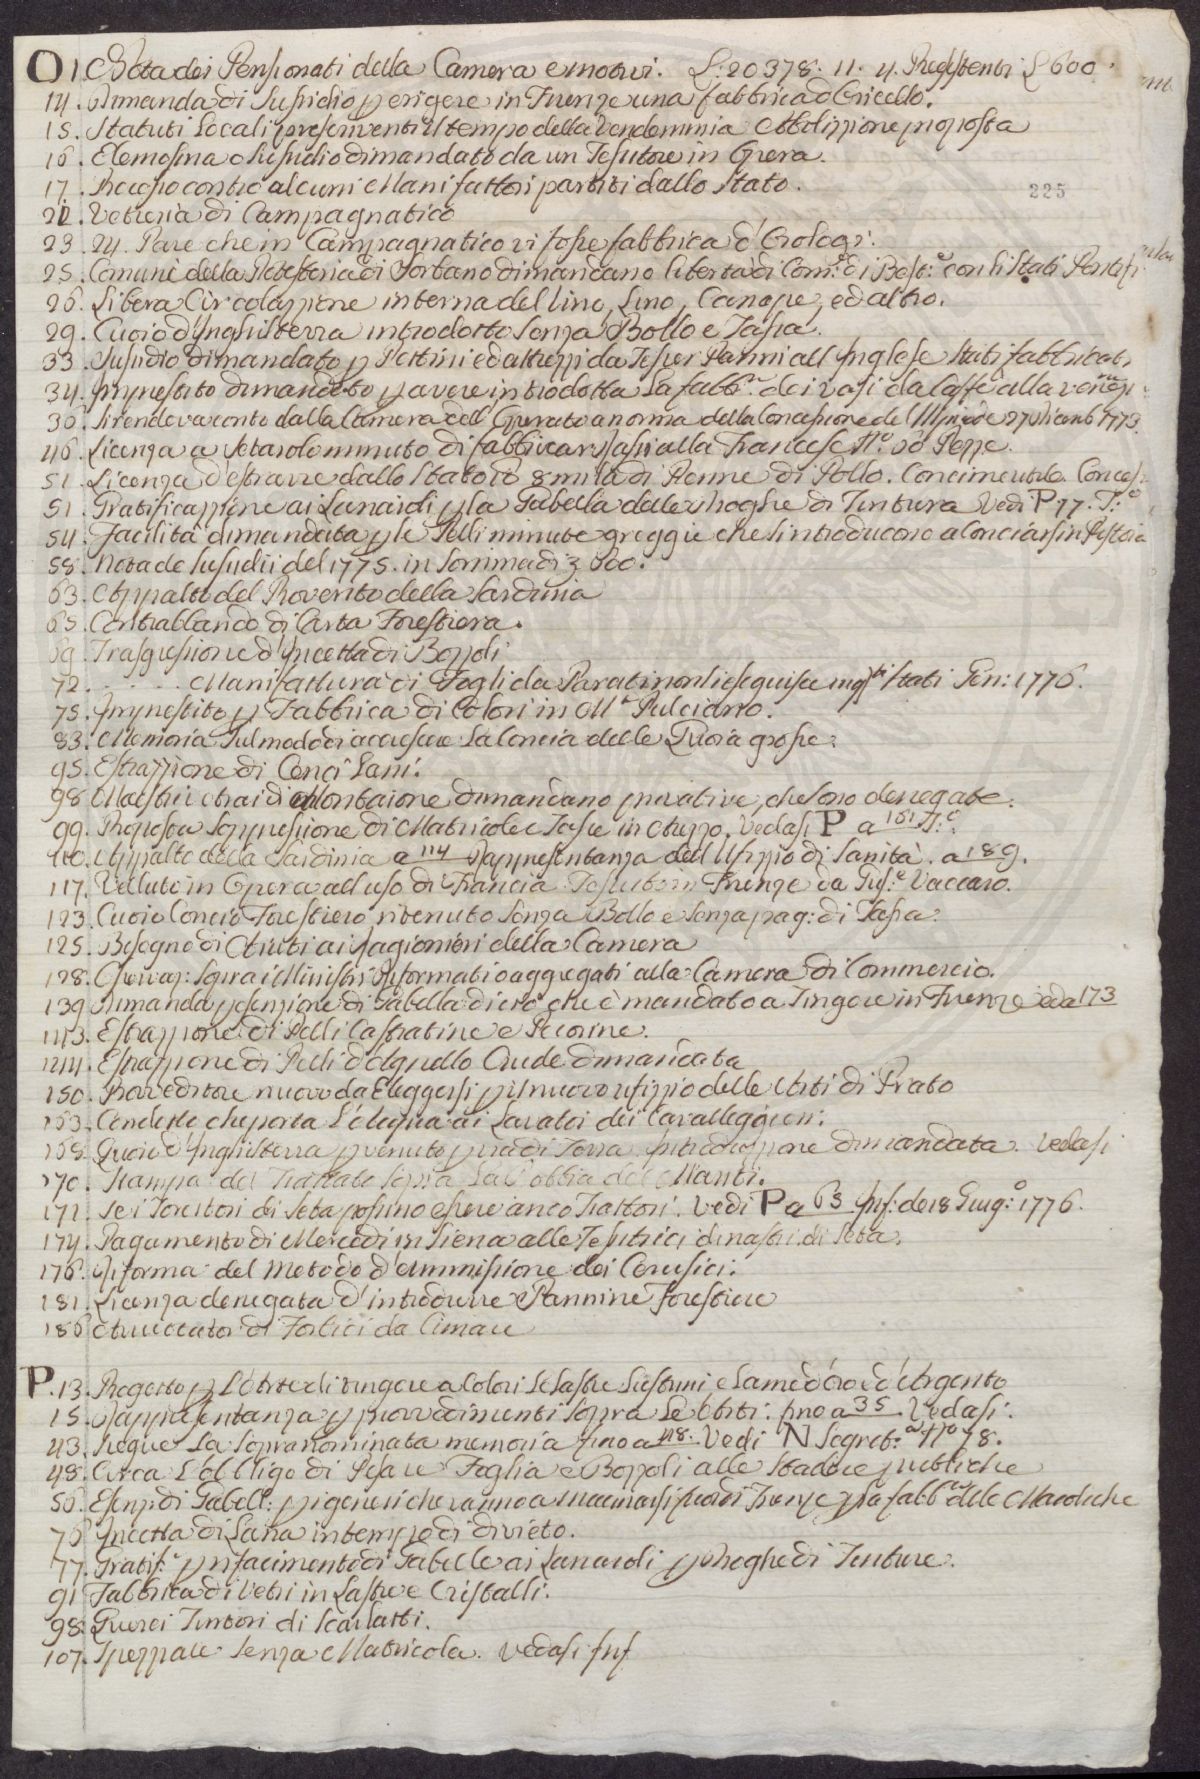 O 1. Nota dei Pensionati della Camera e motivi. L. 20378. 11. 4. Presistenti L 600.
14. Dimanda di Sussidio p erigere in Firenze una fabbrica d'
15. Statuti Locali prescriventi il tempo della Vendemmia Abolizzione proposta
16. Elemosina o Sussidio dimandato da un Tesitore in Opera.
17. Processo contro alcuni Manifattori partiti dallo Stato.
225
22. Vetreria di Campagnatico
23. 24. Pare che in Campagnatico vi fosse fabbrica d'Orologi.
25. Comuni della Potesteria di Sorbano dimandano libertà di Com.o di Best.e con li Stati Pontifi
26. Libera Circolazzione interna del lino, Lino, Canape, ed altro.
29. Cuoio d'Inghilterra introdotto senza Bollo e Tassa.
33. Susidio dimandato p Pettini ed altrezzi da Tesser Panni all Inglese Stati fabbricati
34. Imprestito dimandato p avere introdotta la fabb.ca dei vasi da Caffè alla
36. Si rendeva conto dalla Camera dell Operato a norma della Concessione de 27 Dicemb 1773.
46. Licenza a Setaiolo minuto di fabbicar Rasi alla Francese N.o 20 Pezze.
51. Licenza d'estrarre dallo Stato 8 mila di Penne di Pollo. Concime utile Conces
51. Gratificazzione ai Lanaioli p la Gabella delle Droghe di Tintura Vedi P 77. T.o
54. Facilità dimandata p le Pelli minute greggie che s'introducono a Conciarsi in Pistoia
58. Nota de Susidii del 1775. in Somma di z 600.
63. Appalto del Provento della Sardinia
65. Contrabbando di Carta Forestiera.
69. Trasgressione d'Incetta di Bozzoli
72. . . . . . Manifattura di Fogli da Parati non si eseguisce in q.sti Stati Gen: 1776.
75. Imprestito p Fabbrica di Colori in M.e Pulciano.
83. Memoria sul modo di accrescere la Concia delle Quoia grosse.
95. Estrazzione di Conci Lani.
98. Maestri Vetrai di Montaione dimandano privative, che sono denegate.
99. Proposta Soppressione di Matricole e Tasse in Arezzo. Vedasi P a 161 T.o
110. Appalto della Sardinia a 114 Rappresentanza dell Ufizzio di Sanità. a 189.
117. Velluto in Opera all uso di Francia Tessuto in Firenze da Gius.e Vaccaro.
123. Cuoio Concio Forestiero ritenuto senza Bollo e senza pag: di Tassa.
125. Bisogno di Aiuti ai Ragionieri della Camera
128. Osservaz: sopra i Ministri Riformati o aggregati alla Camera di Commercio.
139. Dimanda p esenzione di Gabella di ciò che è mandato a Tingere in Firenze e da 173
143. Estrazzione di Pelli Castratine e Pecorine.
144. Estrazzione di Pelli d'Agnello Crude dimandata
150. Proveditore nuovo da Eleggersi p il nuovo ufizzio delle Arti di Prato
163. Condotto che porta l'acqua ai Lavatoi dei Cavalleggieri.
168. Quoio d'Inghilterra p venuto p via di Terra. Introduzzione dimandata. Vedasi
170. Stampa del Trattato sopra la Robbia del Nanti.
171. Se i Torcitori di Seta possino essere anco Trattori. Vedi P a 63 Inf: de 18 Giug.o 1776.
174. Pagamento di Mercedi in Siena alle Tesitrici di nastri di Seta.
176. Riforma del Metodo d'ammissione dei Cerusici.
181. Licenza denegata d'introdurre Pannine forestiere
186 Arruotator di Forbici da Cimare
P. 13. Progetto p l'Arte di tingere a Colori le Lastre e Lame d'oro ed'Argento
15. Rappresentanza p provvedimenti sopra le Arti: fino a 35 Vedasi.
43. Segue la sopranominata memoria fino a 48. Vedi N Segret.a N.o 78.
48. Circa l'obbligo di Pesare Foglia e Bozzoli alle Stadere pubbliche
56. Esenz: di Gabell: p i generi che vanno a macinarsi fuori di Firenze p la fabb.ca delle Maioliche
76. Incetta di Lana in tempo di divieto.
77. Gratif.e p rifacimento di Gabelle ai Lanaioli p Droghe di Tinture.
91. Fabbrica di Vetri in Lastre e Cristalli.
98. Querci Tintori di Scarlatti.
107. Spezziale senza Matricola. Vedasi Inf